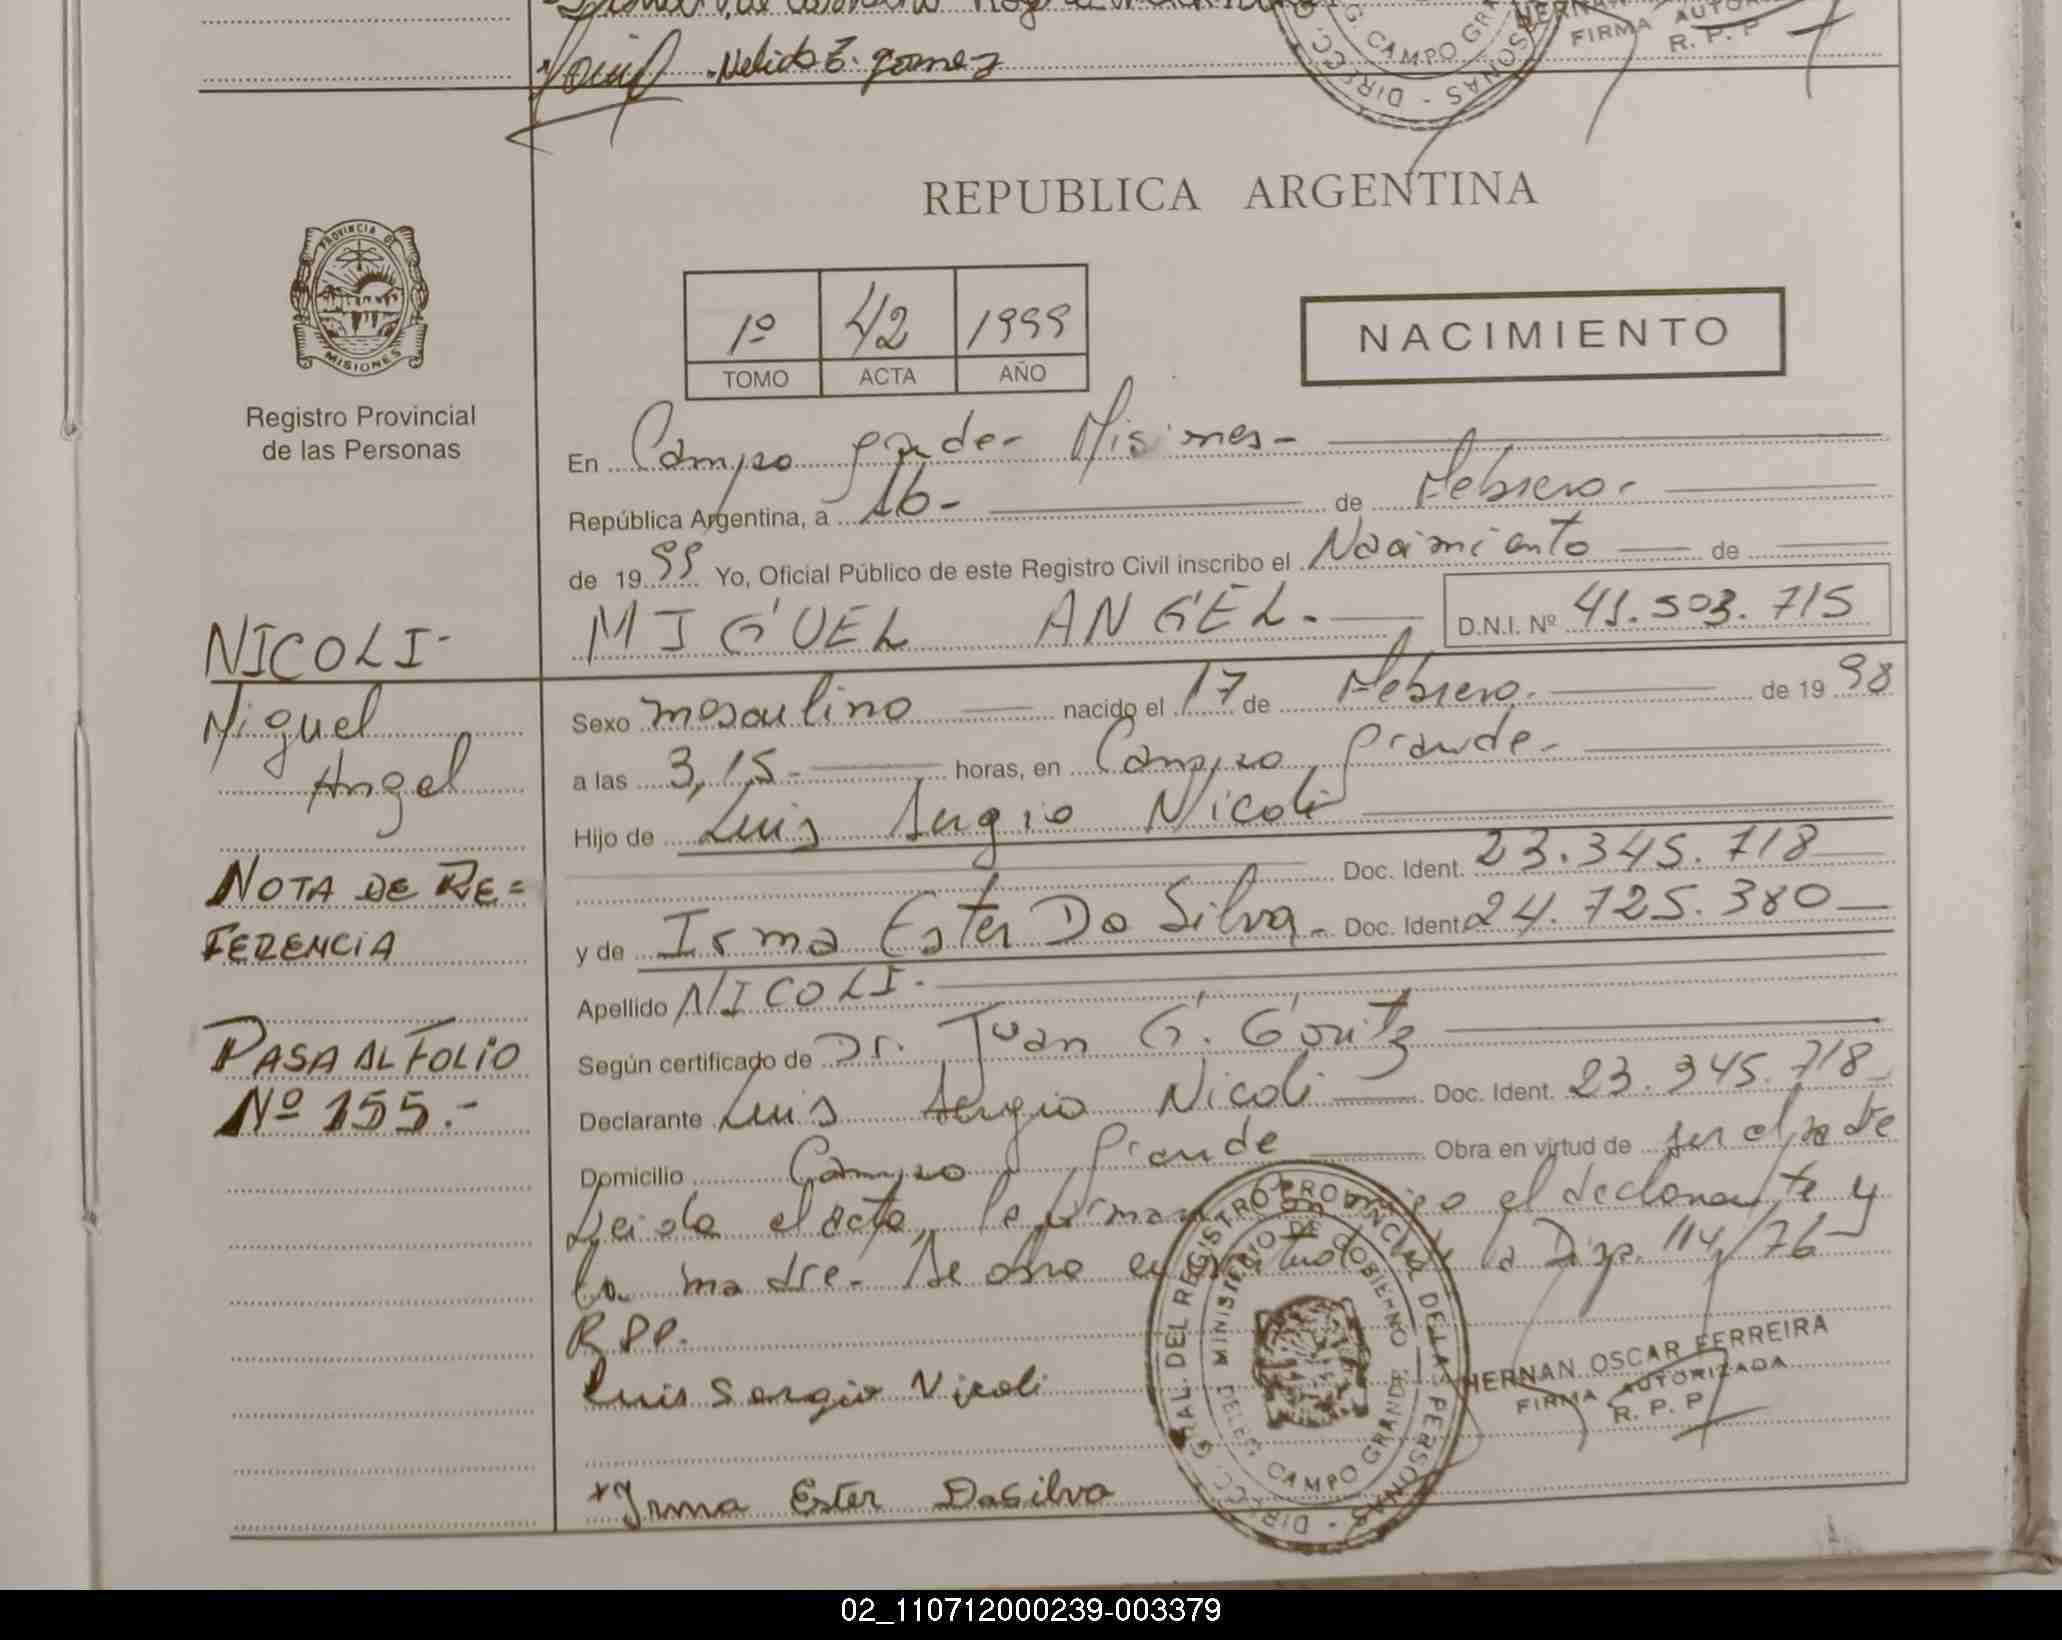 Nelida E. Gomez
G. CAMPO GRA
DIRECC
SONAS
FIRMA AUTOR
R. P. P
REPUBLICA ARGENTINA
PROVINCIA DE
MISIONES
Registro Provincial
de las Personas
1º 42 1999
TOMO ACTA AÑO
NACIMIENTO
En Campo grande- Misiones-
República Argentina, a 16- de Febrero-
de 1999 Yo, Oficial Público de este Registro Civil inscribo el Nacimiento de
MIGUEL ANGEL.- D.N.I. Nº 41.503.715
NICOLI-
Miguel
Angel
NOTA DE RE=
FERENCIA
PASA AL FOLIO
Nº 155.-
Sexo masculino nacido el 17 de Febrero. de 1998
a las 3,15- horas, en Campo Grande-
Hijo de Luis Sergio Nicoli
Doc. Ident. 23.345.718
y de Irma Ester Da Silva- Doc. Ident. 24.725.380
Apellido NICOLI-
Según certificado de Dr. Juan G.
Declarante Luis Sergio Nicoli Doc. Ident. 23.345.718
Domicilio Campo Grande Obra en virtud de ser el padre
Leida el acta, la firman conmigo el declarante y
la madre. Se obra en virtud de la Disp. 114/76
RPP.
Luis Sergio Nicoli
Irma Ester Dasilva
DIRECC. GRAL. DEL REGISTRO PROVINCIAL DE LAS PERSONAS
MINISTERIO DE GOBIERNO
DELEG. CAMPO GRANDE
HERNAN OSCAR FERREIRA
FIRMA AUTORIZADA
R. P. P
02_110712000239-003379